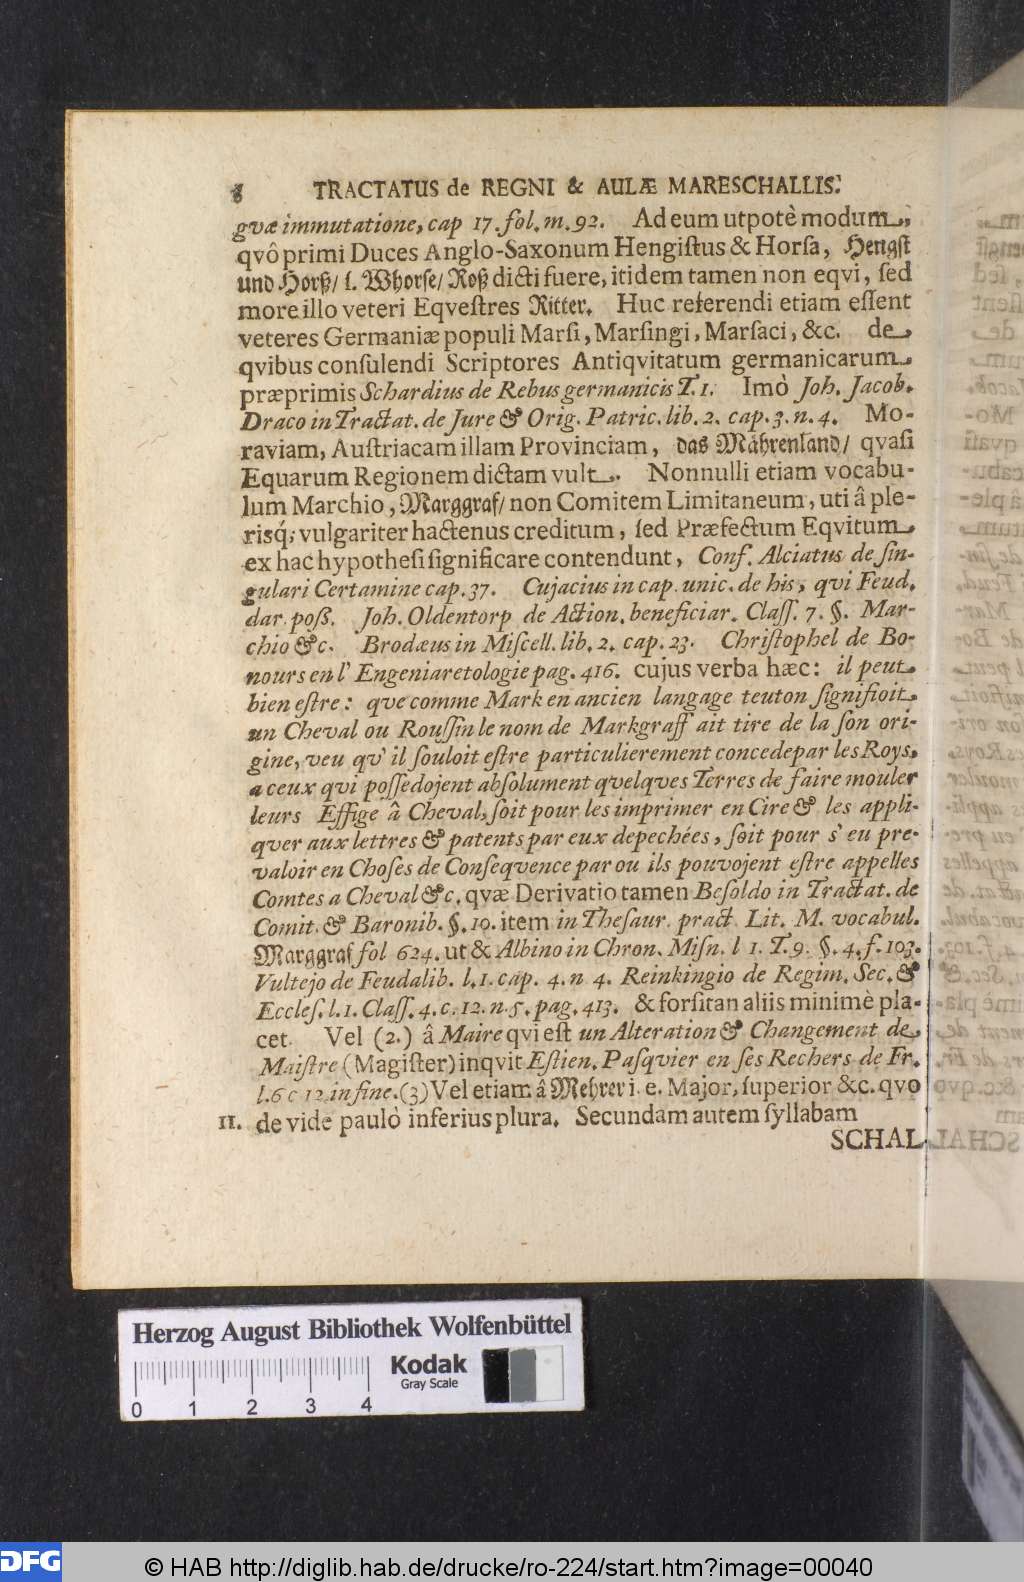 8 TRACTATUS de REGNI & AULÆ MARESCHALLIS.
gvæ immutatione, cap 17. fol. m. 92. Ad eum utpotè modum,
qvô primi Duces Anglo-Saxonum Hengiſtus & Horſa, Hengſt
und Horß/ ſ. Whorſe/ Roß dicti fuere, itidem tamen non eqvi, ſed
more illo veteri Eqveſtres Ritter. Huc referendi etiam eſſent
veteres Germaniæ populi Marſi, Marſingi, Marſaci, &c. de
qvibus conſulendi Scriptores Antiqvitatum germanicarum
præprimis Schardius de Rebus germanicis T. 1. Imò Joh. Jacob.
Draco in Tractat. de Jure & Orig. Patric. lib. 2. cap. 3. n. 4. Mo-
raviam, Auſtriacam illam Provinciam, das Mährenland/ qvaſi
Equarum Regionem dictam vult. Nonnulli etiam vocabu-
lum Marchio, Marggraf/ non Comitem Limitaneum, uti â ple-
risq́; vulgariter hactenus creditum, ſed Præfectum Eqvitum
ex hac hypotheſi ſignificare contendunt, Conf. Alciatus de ſin-
gulari Certamine cap. 37. Cujacius in cap. unic. de his, qvi Feud.
dar. poß. Joh. Oldentorp de Action. beneficiar. Claſſ. 7. §. Mar-
chio &c. Brodæus in Miſcell. lib. 2. cap. 23. Chriſtophel de Bo-
nours en l' Engeniaretologie pag. 416. cujus verba hæc: il peut
bien eſtre: qve comme Mark en ancien langage teuton ſignifioit
un Cheval ou Rouſſin le nom de Markgraff ait tire de la ſon ori-
gine, veu qv' il ſouloit eſtre particulierement concede par les Roys,
a ceux qvi poſſedojent abſolument qvelqves Terres de faire mouler
leurs Effige â Cheval, ſoit pour les imprimer en Cire & les appli-
qver aux lettres & patents par eux depechées, ſoit pour s' eu pre-
valoir en Choſes de Conſeqvence par ou ils pouvojent eſtre appelles
Comtes a Cheval &c. qvæ Derivatio tamen Beſoldo in Tractat. de
Comit. & Baronib. §. 10. item in Theſaur. pract. Lit. M. vocabul.
Marggraf fol 624. ut & Albino in Chron. Miſn. l 1. T. 9. §. 4. f. 103.
Vultejo de Feudalib. l. 1. cap. 4. n 4. Reinkingio de Regim. Sec. &
Eccleſ. l. 1. Claſſ. 4. c. 12. n. 5. pag. 413. & forſitan aliis minimè pla-
cet. Vel (2.) â Maire qvi eſt un Alteration & Changement de
Maiſtre (Magiſter) inqvit Eſtien. Paſqvier en ſes Rechers de Fr.
l. 6 c 12. in fine. (3) Vel etiam â Mehrer i. e. Major, ſuperior &c. qvo
11. de vide paulò inferius plura. Secundam autem ſyllabam
SCHAL
Herzog August Bibliothek Wolfenbüttel
Kodak
Gray Scale
0 1 2 3 4
DFG © HAB http://diglib.hab.de/drucke/ro-224/start.htm?image=00040